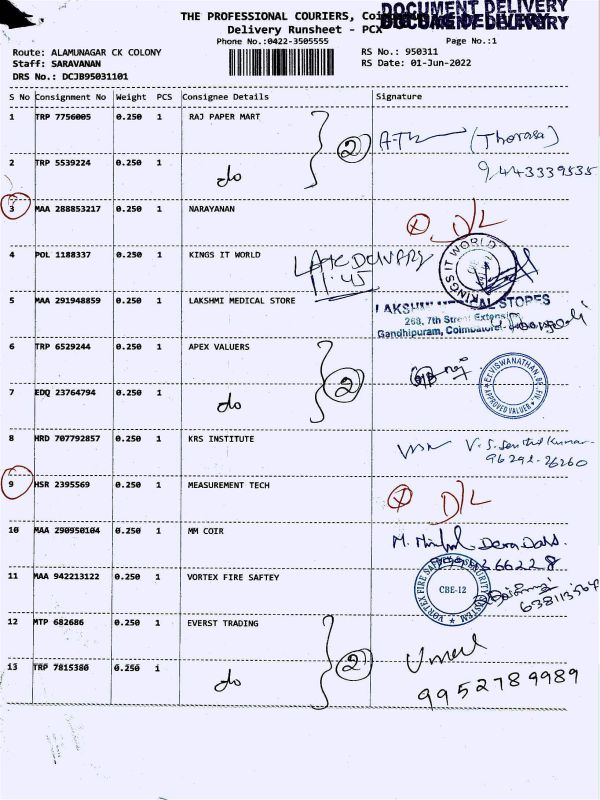 DOCUMENT DELIVERY
THE PROFESSIONAL COURIERS,
Delivery Runsheet - PCX
Phone No.:0422-3505555 Page No.:1
Route: ALAMUNAGAR CK COLONY RS No.: 950311
Staff: SARAVANAN RS Date: 01-Jun-2022
DRS No.: DCJB95031101
S No Consignment No Weight PCS Consignee Details Signature
1 TRP 7756005 0.250 1 RAJ PAPER MART
2
2 TRP 5539224 0.250 1 do
9443339535
3 MAA 288853217 0.250 1 NARAYANAN
X D/L
4 POL 1188337 0.250 1 KINGS IT WORLD
LATE DELIVERY
11:45
KINGS IT WORLD
5 MAA 291948859 0.250 1 LAKSHMI MEDICAL STORE
LAKSHMI MEDICAL STORES
268, 7th Street Extension
Gandhipuram, Coimbatore
6 TRP 6529244 0.250 1 APEX VALUERS
2
7 EDQ 23764794 0.250 1 do
ER.VISWANATHAN.BE.FIV.
APPROVED VALUER
8 HRD 707792857 0.250 1 KRS INSTITUTE
V. S. Senthil Kumar
96292-26260
9 HSR 2395569 0.250 1 MEASUREMENT TECH
X D/L
10 MAA 290950104 0.250 1 MM COIR
11 MAA 942213122 0.250 1 VORTEX FIRE SAFTEY
VORTEX FIRE SAFETY SECURITY SYSTEM
CBE-12
12 MTP 682686 0.250 1 EVERST TRADING
2
13 TRP 7815380 0.250 1 do
9952789989